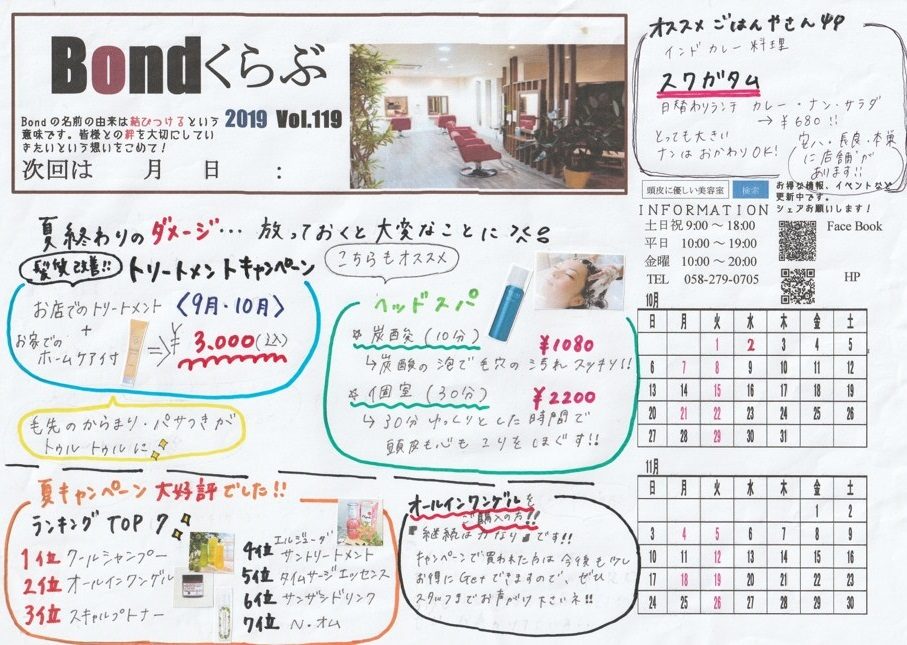 Bondくらぶ
Bondの名前の由来は結びつけるという
意味です。皆様との絆を大切にしてい
きたいという想いをこめて！
2019 Vol.119
次回は 月 日 :
オススメ ごはんやさん
インドカレー料理
スワガタム
日替わりランチ カレー・ナン・サラダ
→ ¥680!!
とっても大きい
ナンは おかわりOK!
穴八・長良・本巣
に店舗が
あります!!
頭皮に優しい美容室 検索
お得な情報、イベントなど
更新中です。
シェアお願いします！
INFORMATION
土日祝 9:00 ～ 18:00
平日 10:00 ～ 19:00
金曜 10:00 ～ 20:00
TEL 058-279-0705
Face Book
HP
夏終わりのダメージ… 放っておくと大変なことに
髪質改善!! トリートメントキャンペーン
お店でのトリートメント 〈9月・10月〉
+
お家での
ホームケア付
⇒ ¥3.000(税込)
毛先のからまり・パサつきが
トゥルトゥルに
こちらもオススメ
ヘッドスパ
☆ 炭酸泡 (10分) ¥1080
↳炭酸の泡で毛穴の汚れスッキリ!!
☆ 個室 (30分) ¥2200
↳30分ゆっくりとした時間で
頭皮も心もコリをほぐす!!
夏キャンペーン 大好評でした!!
ランキング TOP 7
1位 クールシャンプー
2位 オールインワンゲル
3位 スキャルプトナー
4位 エルジューダ
サントリートメント
5位 タイムサージエッセンス
6位 サンザシドリンク
7位 N.オム
オールインワンゲルを
ご購入の方!!
継続はかなりです!!
キャンペーンで買われた方は今後も少し
お得にGetできますので、ぜひ
スタッフまでお声がけ下さいネ!!
10月
日 月 火 水 木 金 土
1 2 3 4 5
6 7 8 9 10 11 12
13 14 15 16 17 18 19
20 21 22 23 24 25 26
27 28 29 30 31
11月
日 月 火 水 木 金 土
1 2
3 4 5 6 7 8 9
10 11 12 13 14 15 16
17 18 19 20 21 22 23
24 25 26 27 28 29 30